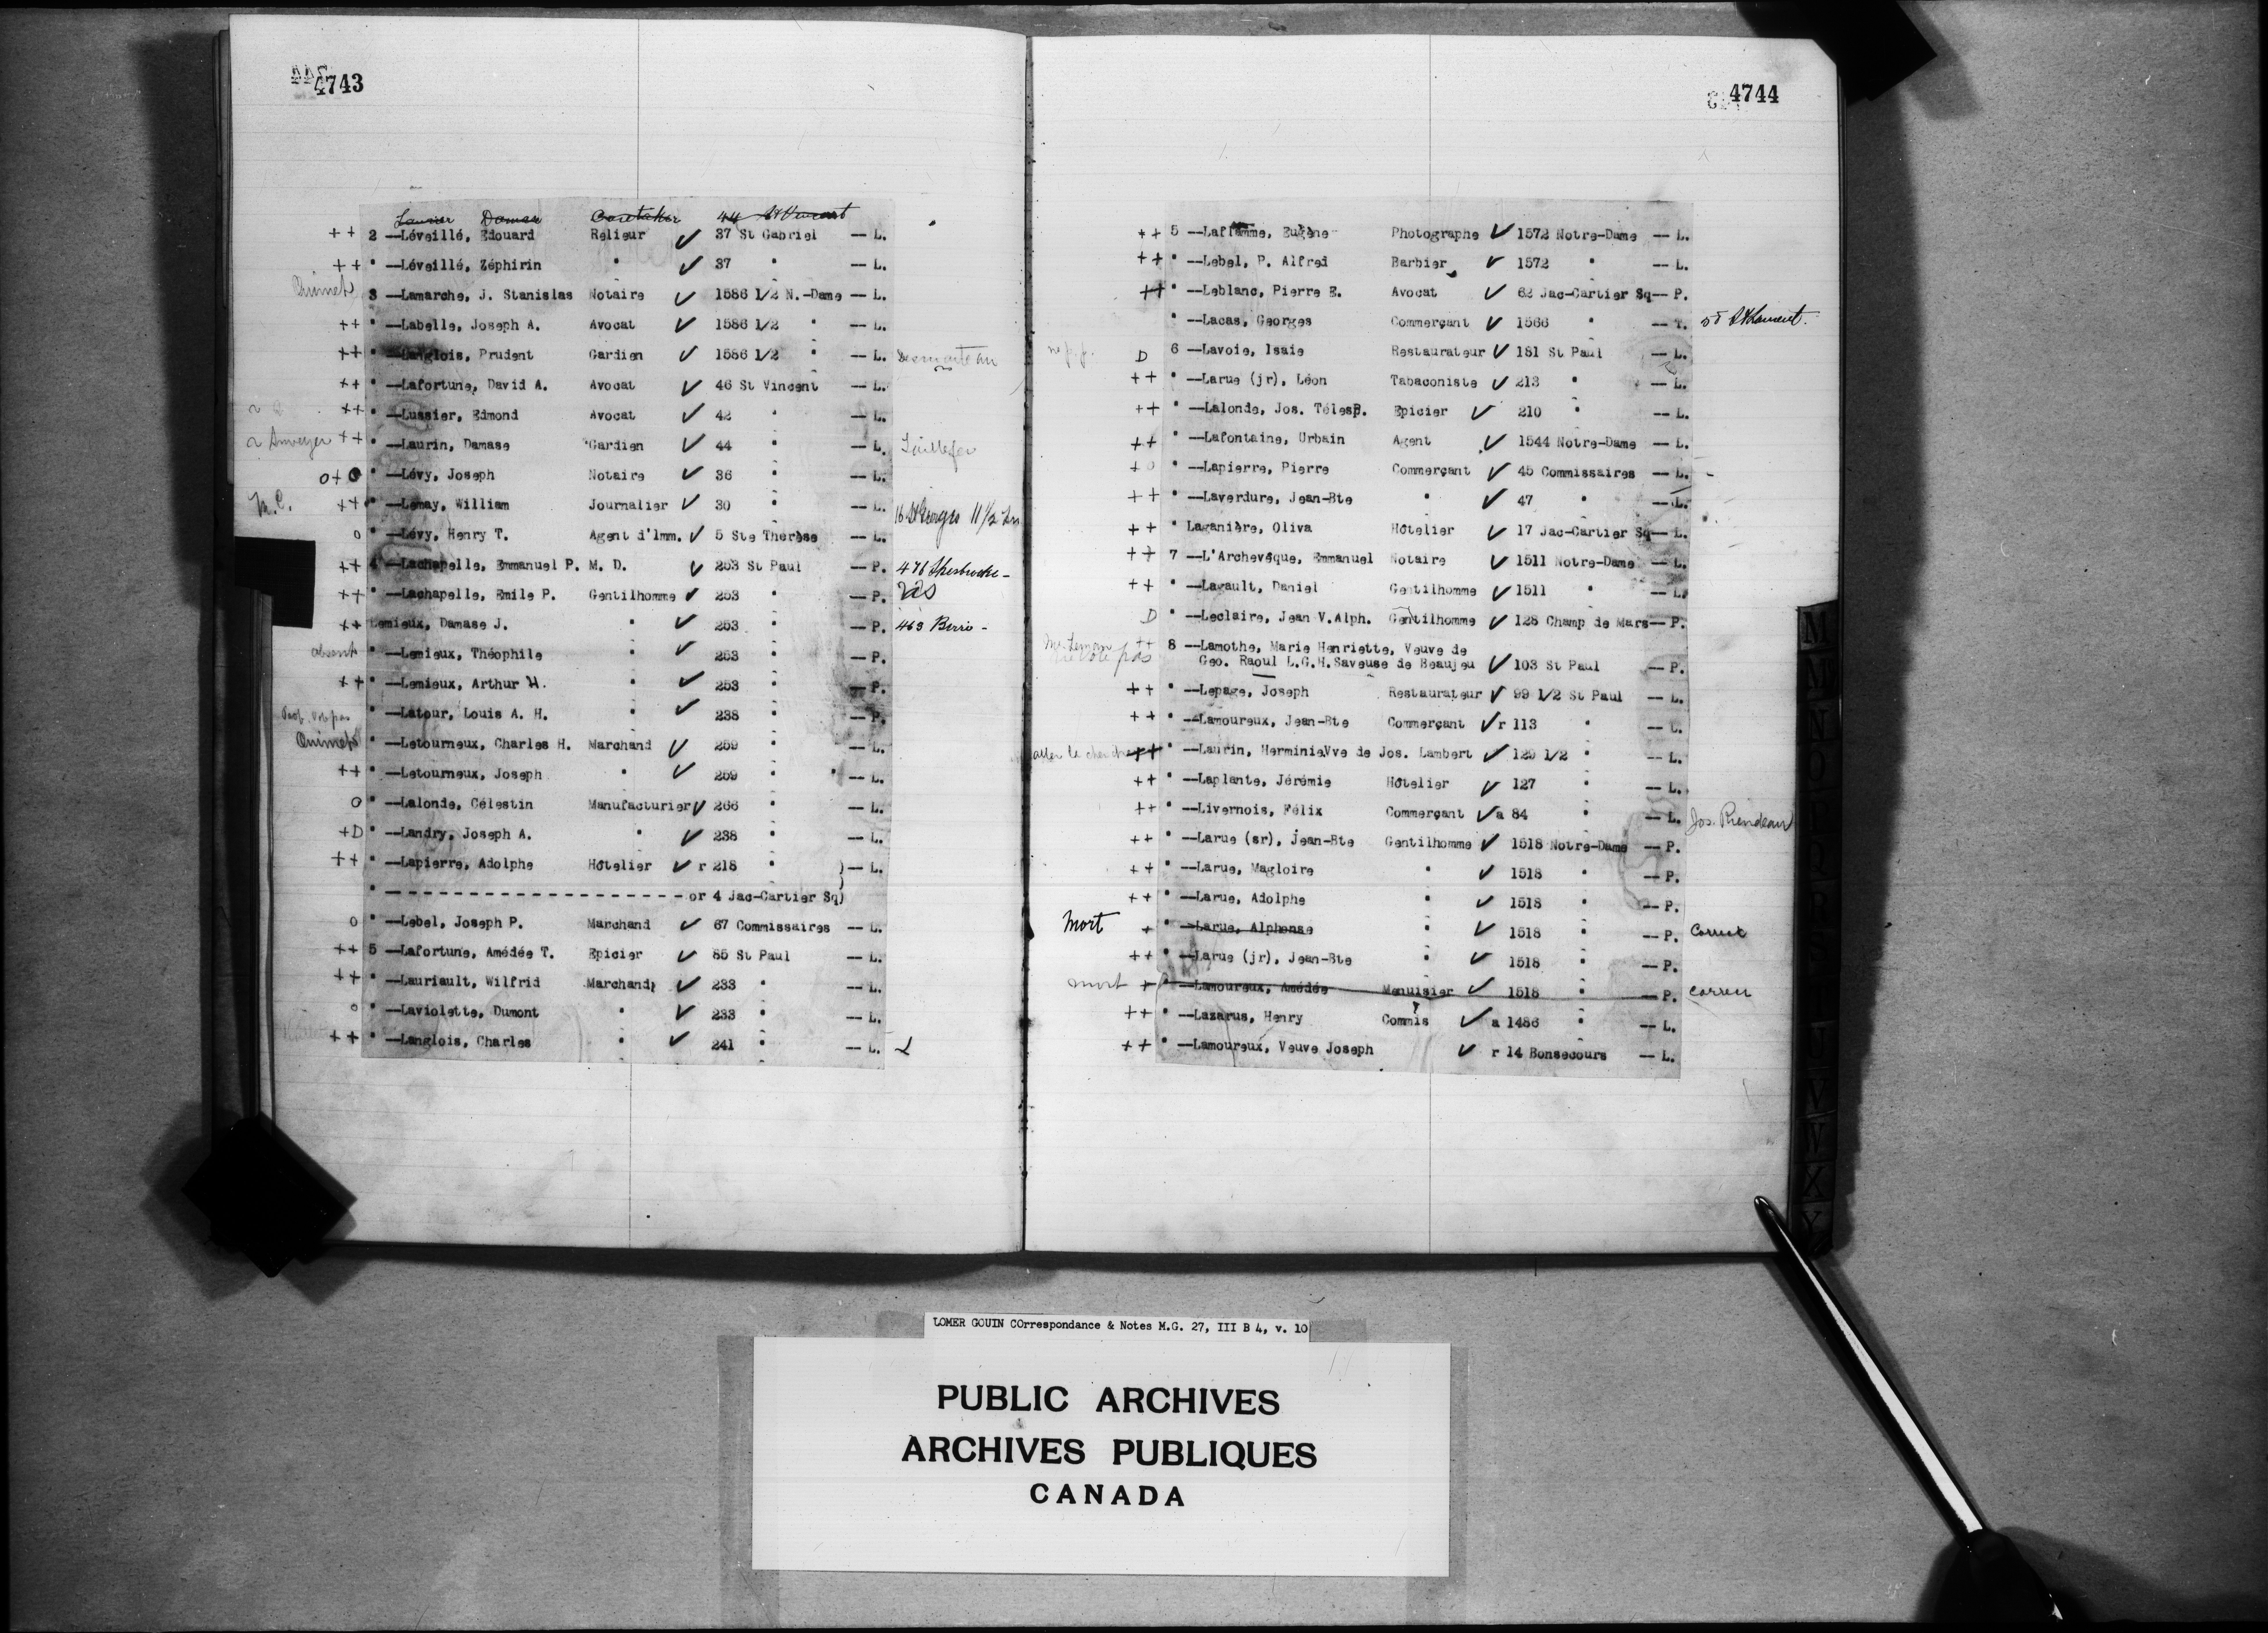 4743
Laurier Damase Caretaker 44 St Vincent
++ 2 —Léveillé, Edouard Relieur ✓ 37 St Gabriel — L.
++ " —Léveillé, Zéphirin " ✓ 37 " — L.
Ouimet 3 —Lamarche, J. Stanislas Notaire ✓ 1586 1/2 N.-Dame — L.
++ " —Labelle, Joseph A. Avocat ✓ 1586 1/2 " — L.
++ " —Langlois, Prudent Gardien ✓ 1586 1/2 " — L. Desmarteau
++ " —Lafortune, David A. Avocat ✓ 46 St Vincent — L.
++ " —Lussier, Edmond Avocat ✓ 42 " — L.
++ " —Laurin, Damase Gardien ✓ 44 " — L. Taillefer
o+o " —Lévy, Joseph Notaire ✓ 36 " — L.
M.C. ++ " —Lemay, William Journalier ✓ 30 " — L. 16 St Georges 11 1/2
o " —Lévy, Henry T. Agent d'Imm. ✓ 5 Ste Thérèse — L.
++ 4 —Lachapelle, Emmanuel P. M. D. ✓ 253 St Paul — P. 476 Sherbrooke -
++ " —Lachapelle, Emile P. Gentilhomme ✓ 253 " — P.
++ Lemieux, Damase J. " ✓ 253 " — P. 463 Berri -
absent " —Lemieux, Théophile " ✓ 253 " — P.
++ " —Lemieux, Arthur H. " ✓ 253 " — P.
" —Latour, Louis A. H. " ✓ 238 " — P.
Ouimet " —Letourneux, Charles H. Marchand ✓ 259 " — L.
++ " —Letourneux, Joseph " ✓ 259 " — L.
o " —Lalonde, Célestin Manufacturier ✓ 266 " — L.
+D " —Landry, Joseph A. " ✓ 238 " — L.
++ " —Lapierre, Adolphe Hôtelier ✓ r 218 " )— L.
" — — — — — — — — — — — — — — — — or 4 Jac-Cartier Sq)
o " —Lebel, Joseph P. Marchand ✓ 67 Commissaires — L.
++ 5 —Lafortune, Amédée T. Epicier ✓ 85 St Paul — L.
++ " —Lauriault, Wilfrid Marchand ✓ 233 " — L.
o " —Laviolette, Dumont " ✓ 233 " — L.
++ " —Langlois, Charles " ✓ 241 " — L. L
4744
++ 5 —Laflamme, Eugène Photographe ✓ 1572 Notre-Dame — L.
++ " —Lebel, P. Alfred Barbier ✓ 1572 " — L.
++ " —Leblanc, Pierre E. Avocat ✓ 62 Jac-Cartier Sq— P.
" —Lacas, Georges Commerçant ✓ 1566 " — T. 55 St Laurent.
D 6 —Lavoie, Isaie Restaurateur ✓ 181 St Paul — L.
++ " —Larue (jr), Léon Tabaconiste ✓ 213 " — L.
++ " —Lalonde, Jos. Télesp. Epicier ✓ 210 " — L.
++ " —Lafontaine, Urbain Agent ✓ 1544 Notre-Dame — L.
+o " —Lapierre, Pierre Commerçant ✓ 45 Commissaires — L. -
++ " —Laverdure, Jean-Bte " ✓ 47 " — L.
++ " Laganière, Oliva Hôtelier ✓ 17 Jac-Cartier Sq— L.
++ 7 —L'Archevêque, Emmanuel Notaire ✓ 1511 Notre-Dame — L.
++ " —Lagault, Daniel Gentilhomme ✓ 1511 " — L.
D " —Leclaire, Jean V.Alph. Gentilhomme ✓ 128 Champ de Mars— P.
++ 8 —Lamothe, Marie Henriette, Veuve de
ne vote pas Geo. Raoul L.G.H.Saveuse de Beaujeu ✓ 103 St Paul — P.
++ " —Lepage, Joseph Restaurateur ✓ 99 1/2 St Paul — L.
++ " —Lamoureux, Jean-Bte Commerçant ✓ r 113 " — L.
aller la chercher ++ " —Laurin, Herminie Vve de Jos. Lambert ✓ 129 1/2 " — L.
++ " —Laplante, Jérémie Hôtelier ✓ 127 " — L.
++ " —Livernois, Félix Commerçant ✓ a 84 " — L. Jos. Riendeau
++ " —Larue (sr), Jean-Bte Gentilhomme ✓ 1518 Notre-Dame — P.
++ " —Larue, Magloire " ✓ 1518 " — P.
++ " —Larue, Adolphe " ✓ 1518 " — P.
Mort + " —Larue, Alphonse " ✓ 1518 " — P. Correct
++ " —Larue (jr), Jean-Bte " ✓ 1518 " — P.
mort + " —Lamoureux, Amédée Menuisier ✓ 1518 " — P. correct
++ " —Lazarus, Henry Commis ✓ a 1486 " — L.
++ " —Lamoureux, Veuve Joseph ✓ r 14 Bonsecours — L.
M
M
N
O
P
R
U
V
W
X
Y
LOMER GOUIN COrrespondance & Notes M.G. 27, III B 4, v. 10
PUBLIC ARCHIVES
ARCHIVES PUBLIQUES
CANADA